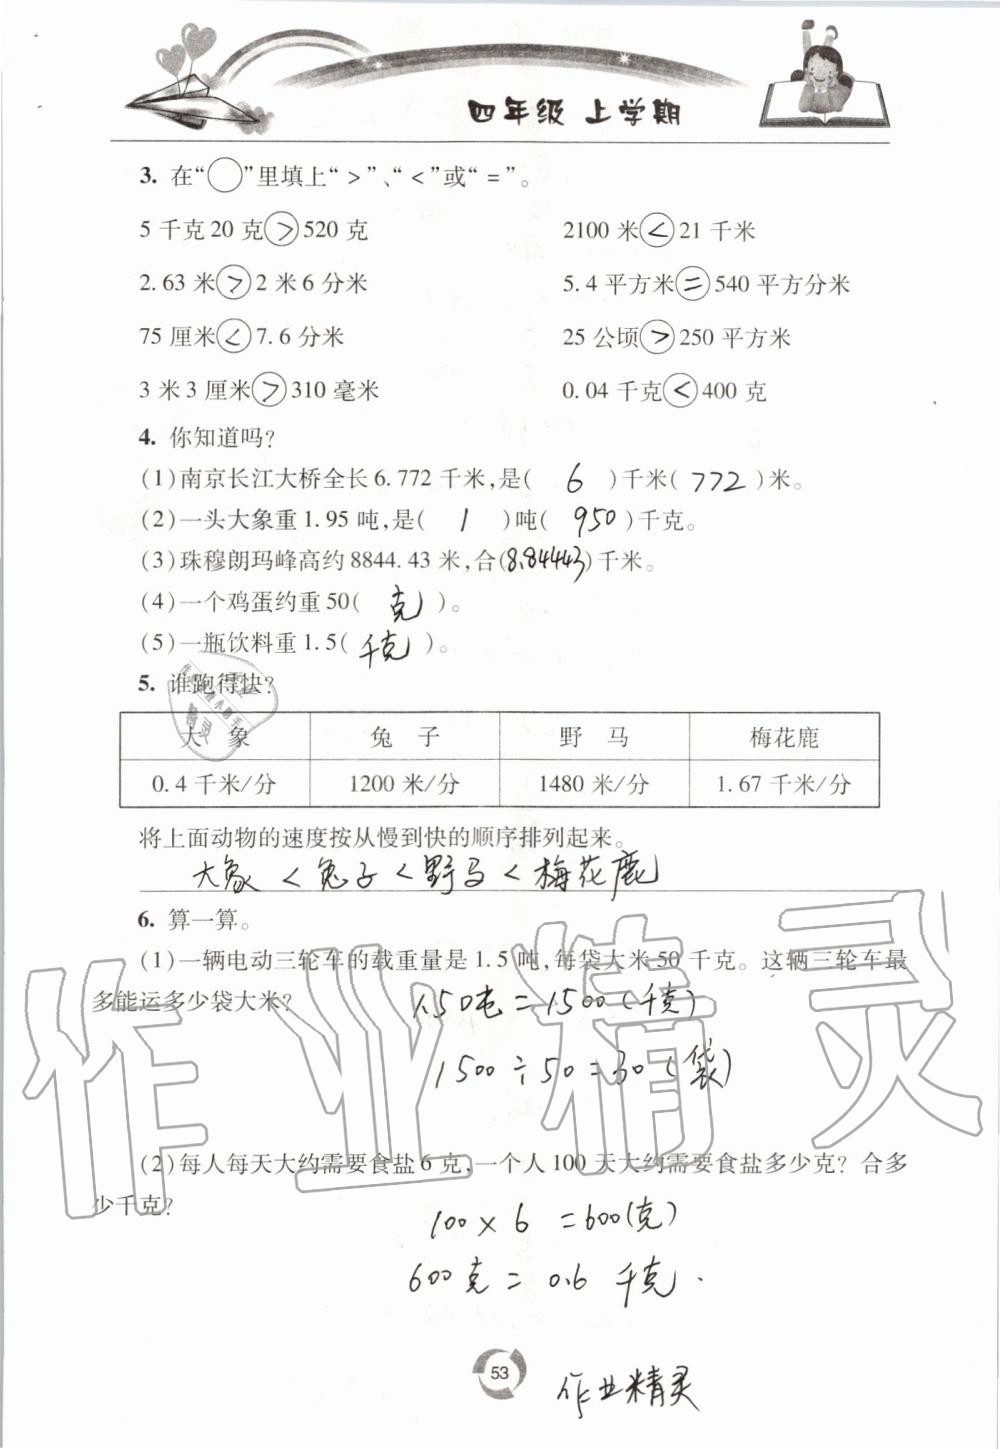 四年级 上学期
3. 在“○”里填上“>”、“<”或“=”。
5 千克 20 克 > 520 克
2100 米 < 21 千米
2.63 米 > 2 米 6 分米
5.4 平方米 = 540 平方分米
75 厘米 < 7.6 分米
25 公顷 > 250 平方米
3 米 3 厘米 > 310 毫米
0.04 千克 < 400 克
4. 你知道吗?
(1)南京长江大桥全长 6.772 千米,是( 6 )千米( 772 )米。
(2)一头大象重 1.95 吨,是( 1 )吨( 950 )千克。
(3)珠穆朗玛峰高约 8844.43 米,合(8.84443)千米。
(4)一个鸡蛋约重 50( 克 )。
(5)一瓶饮料重 1.5( 千克 )。
5. 谁跑得快?
大 象 兔 子 野 马 梅花鹿
0.4 千米/分 1200 米/分 1480 米/分 1.67 千米/分
将上面动物的速度按从慢到快的顺序排列起来。
大象 < 兔子 < 野马 < 梅花鹿
6. 算一算。
(1)一辆电动三轮车的载重量是 1.5 吨,每袋大米 50 千克。这辆三轮车最
多能运多少袋大米?
1.50吨=1500(千克)
1500÷50=30(袋)
(2)每人每天大约需要食盐 6 克,一个人 100 天大约需要食盐多少克? 合多
少千克?
100×6=600(克)
600克=0.6 千克.
53
作业精灵
作业精灵